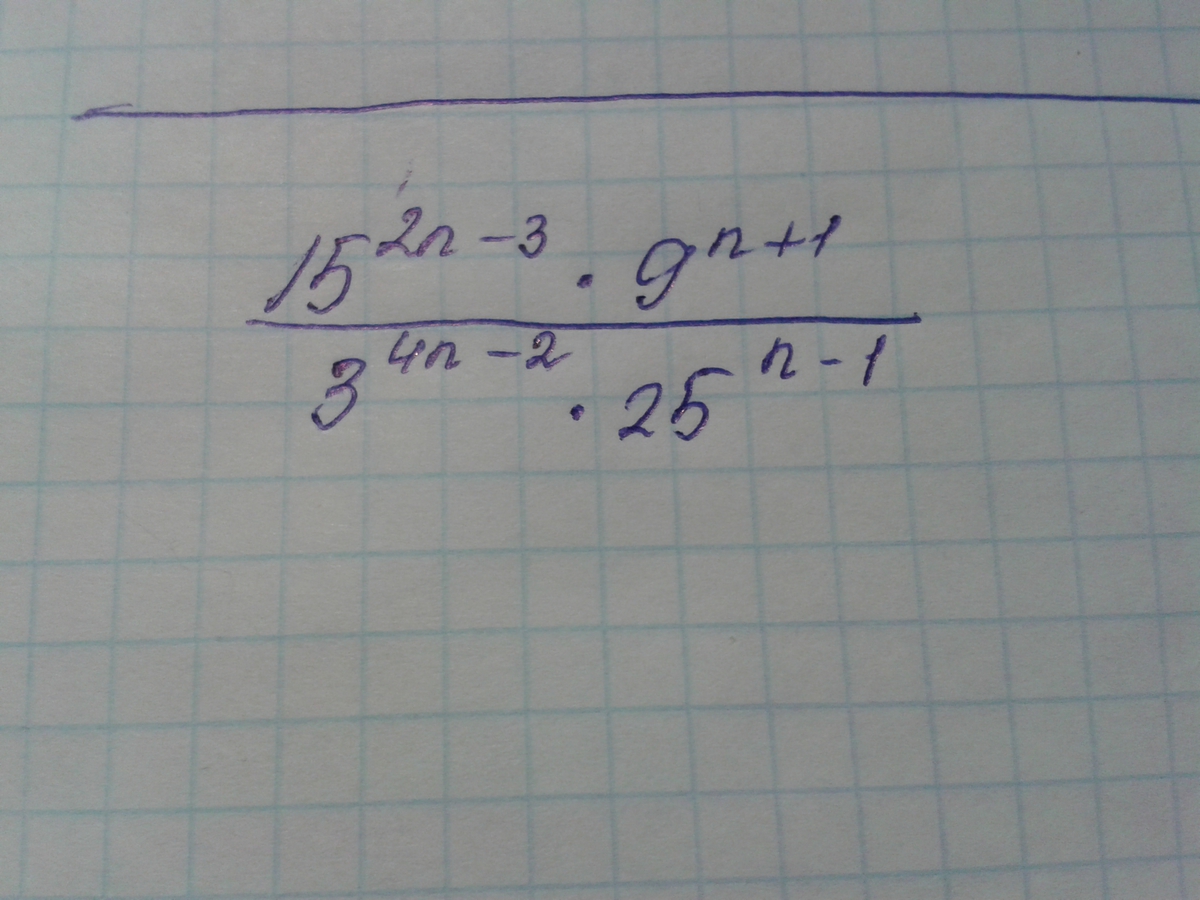 15^{2n-3} · 9^{n+1}
3^{4n-2} · 25^{n-1}